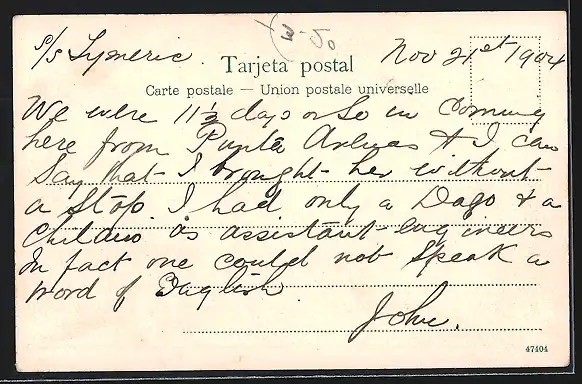 S/S Lymeric. Nov 21st 1904
W-50
Tarjeta postal
Carte postale — Union postale universelle
We were 11½ days or so in coming
here from Punta Arenas & I can
say that I brought her without
a stop. I had only a Dago & a
Chilano as assistant-engineers
In fact one could not speak a
word of English.
John.
47404